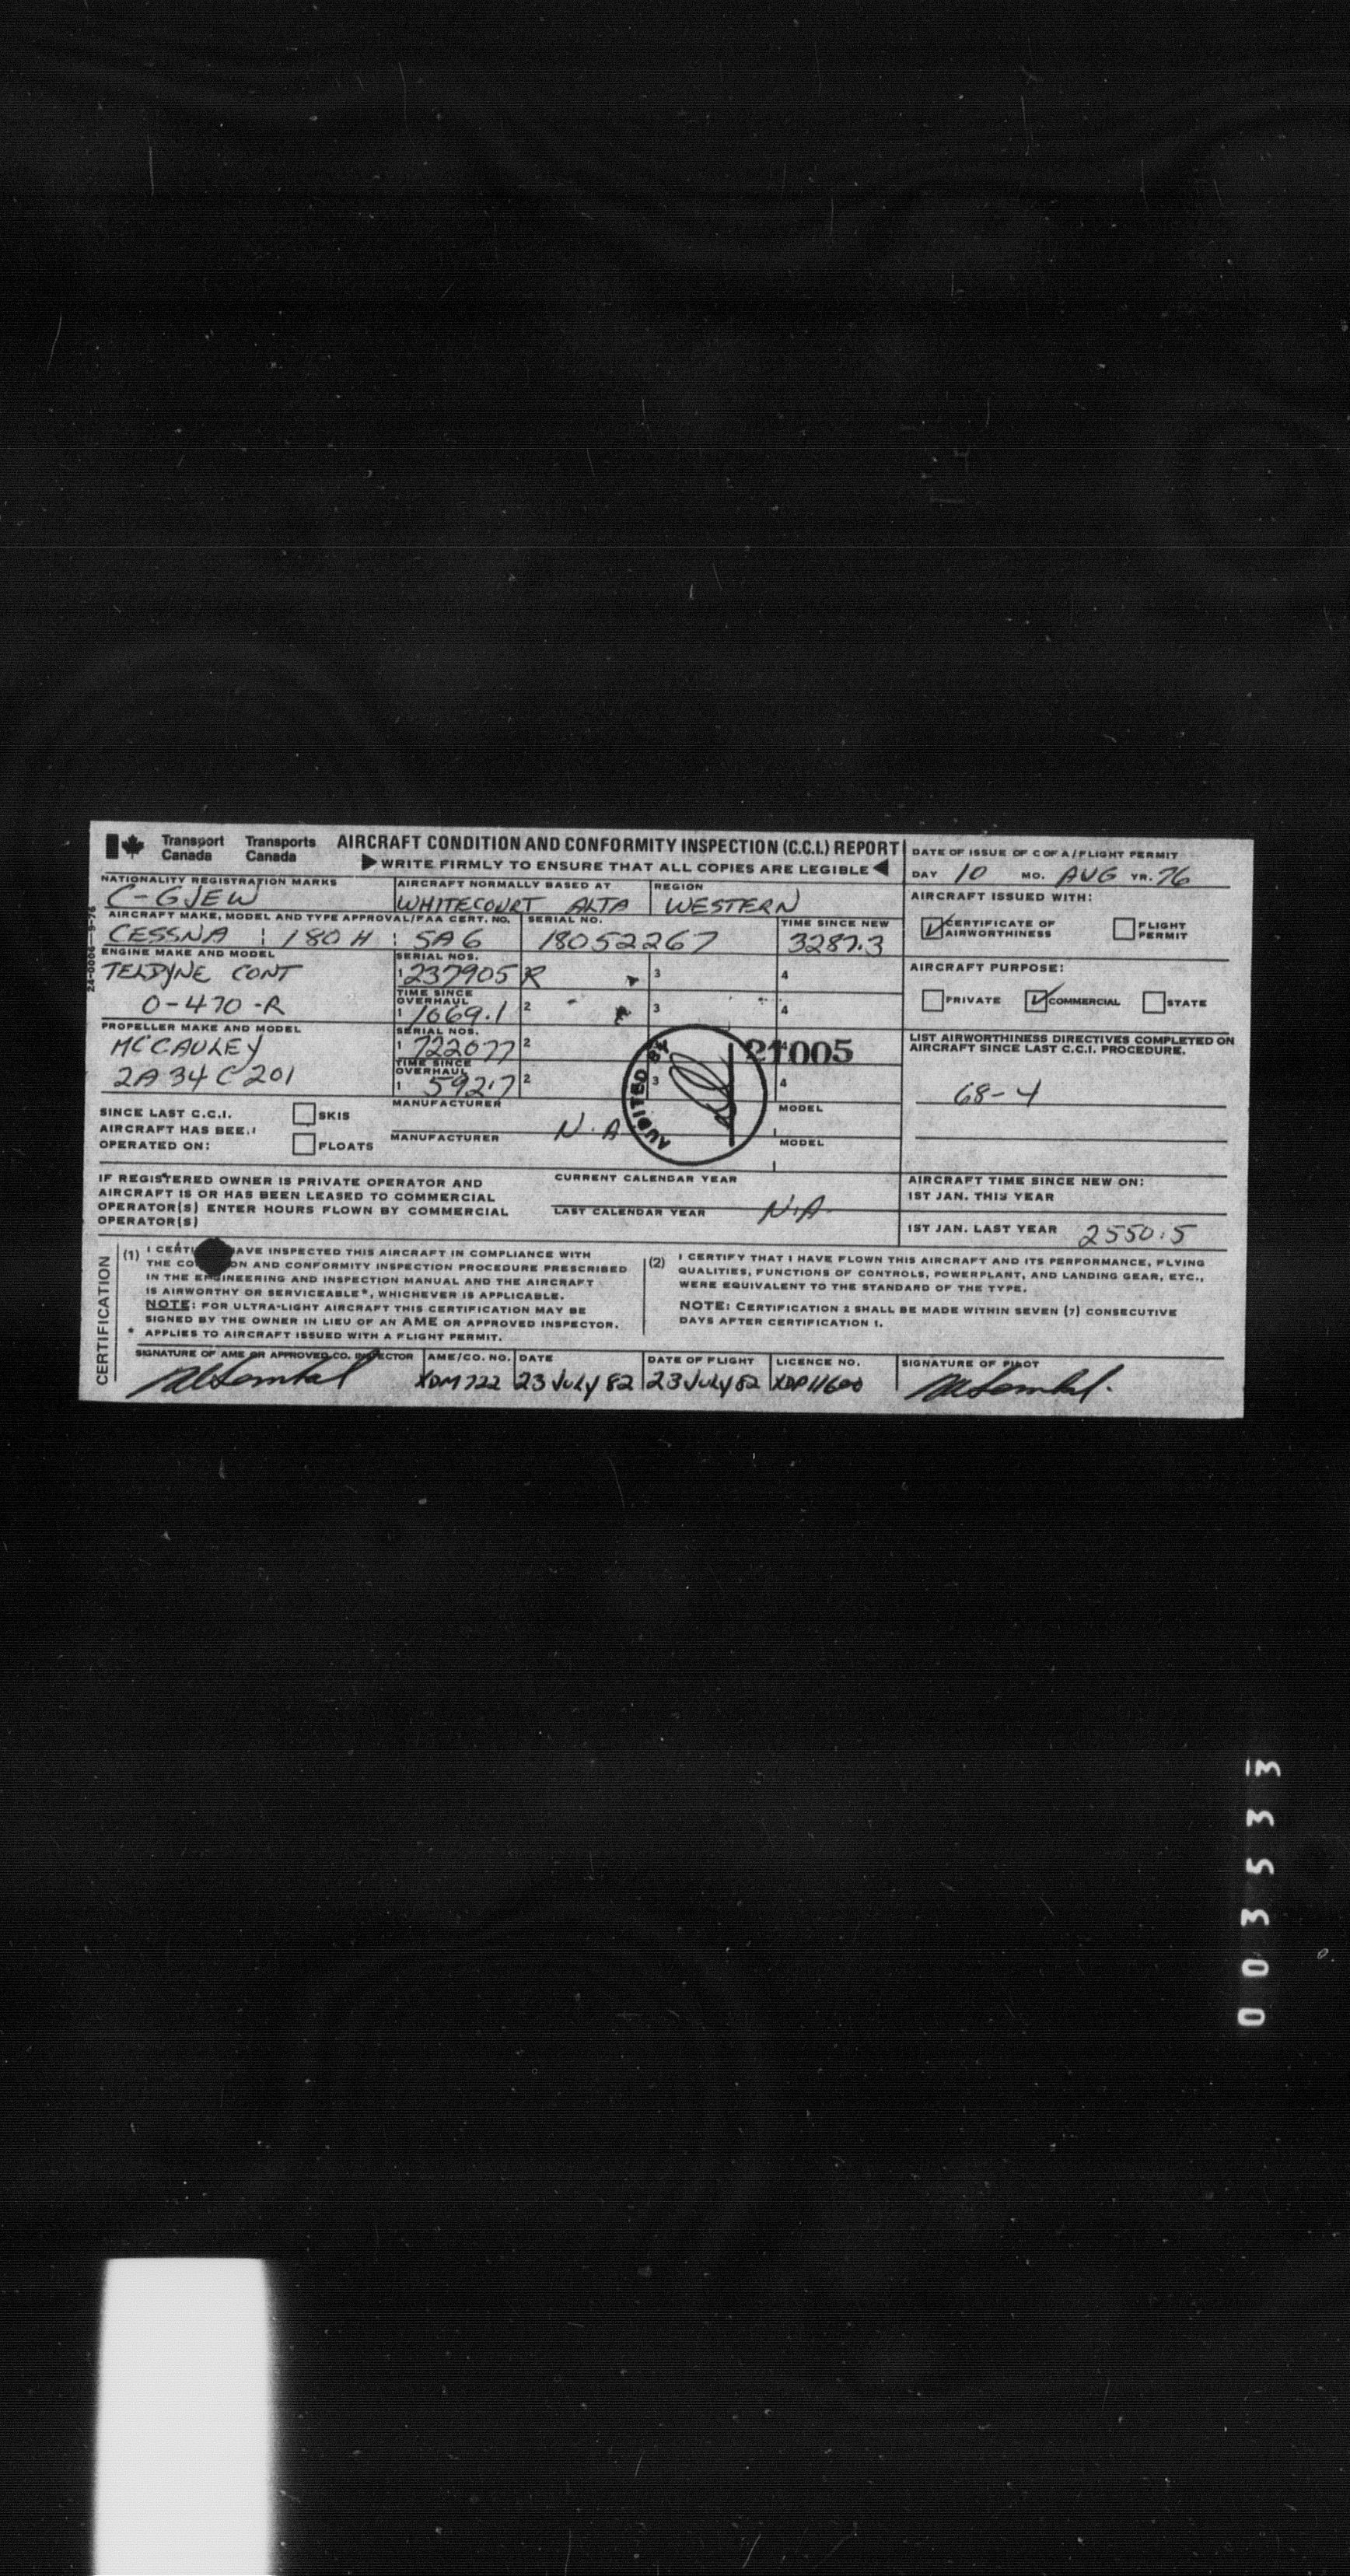 Transport Canada Transports Canada AIRCRAFT CONDITION AND CONFORMITY INSPECTION (C.C.I.) REPORT
WRITE FIRMLY TO ENSURE THAT ALL COPIES ARE LEGIBLE
DATE OF ISSUE OF C OF A/FLIGHT PERMIT
DAY 10 MO. AUG YR. 76
NATIONALITY REGISTRATION MARKS
C-GJEW
AIRCRAFT NORMALLY BASED AT
WHITECOURT ALTA
REGION
WESTERN
AIRCRAFT ISSUED WITH:
CERTIFICATE OF AIRWORTHINESS
FLIGHT PERMIT
AIRCRAFT MAKE, MODEL AND TYPE APPROVAL/FAA CERT. NO.
CESSNA 180 H 5A6
SERIAL NO.
18052267
TIME SINCE NEW
3287.3
ENGINE MAKE AND MODEL
TELDYNE CONT
O-470-R
SERIAL NOS.
1 237905 R 3 4
TIME SINCE OVERHAUL
1 1069.1 2 3 4
AIRCRAFT PURPOSE:
PRIVATE COMMERCIAL STATE
PROPELLER MAKE AND MODEL
MCCAULEY
2A34C201
SERIAL NOS.
1 722077 2
TIME SINCE OVERHAUL
1 592.7 2 3 4
AUDITED BY
21005
LIST AIRWORTHINESS DIRECTIVES COMPLETED ON
AIRCRAFT SINCE LAST C.C.I. PROCEDURE.
68-4
SINCE LAST C.C.I.
AIRCRAFT HAS BEE
OPERATED ON:
SKIS
FLOATS
MANUFACTURER
MODEL
N.A
MANUFACTURER
MODEL
IF REGISTERED OWNER IS PRIVATE OPERATOR AND
AIRCRAFT IS OR HAS BEEN LEASED TO COMMERCIAL
OPERATOR(S) ENTER HOURS FLOWN BY COMMERCIAL
OPERATOR(S)
CURRENT CALENDAR YEAR
LAST CALENDAR YEAR
N.A.
AIRCRAFT TIME SINCE NEW ON:
1ST JAN. THIS YEAR
1ST JAN. LAST YEAR 2550.5
CERTIFICATION
(1) I CERTI AVE INSPECTED THIS AIRCRAFT IN COMPLIANCE WITH
THE CO ON AND CONFORMITY INSPECTION PROCEDURE PRESCRIBED
IN THE ENGINEERING AND INSPECTION MANUAL AND THE AIRCRAFT
IS AIRWORTHY OR SERVICEABLE*, WHICHEVER IS APPLICABLE.
NOTE: FOR ULTRA-LIGHT AIRCRAFT THIS CERTIFICATION MAY BE
SIGNED BY THE OWNER IN LIEU OF AN AME OR APPROVED INSPECTOR.
* APPLIES TO AIRCRAFT ISSUED WITH A FLIGHT PERMIT.
(2) I CERTIFY THAT I HAVE FLOWN THIS AIRCRAFT AND ITS PERFORMANCE, FLYING
QUALITIES, FUNCTIONS OF CONTROLS, POWERPLANT, AND LANDING GEAR, ETC.,
WERE EQUIVALENT TO THE STANDARD OF THE TYPE.
NOTE: CERTIFICATION 2 SHALL BE MADE WITHIN SEVEN (7) CONSECUTIVE
DAYS AFTER CERTIFICATION 1.
SIGNATURE OF AME OR APPROVED CO. INSPECTOR AME/CO. NO. DATE DATE OF FLIGHT LICENCE NO. SIGNATURE OF PILOT
XDM722 23 JULY 82 23 JULY 82 XDP11600
003533